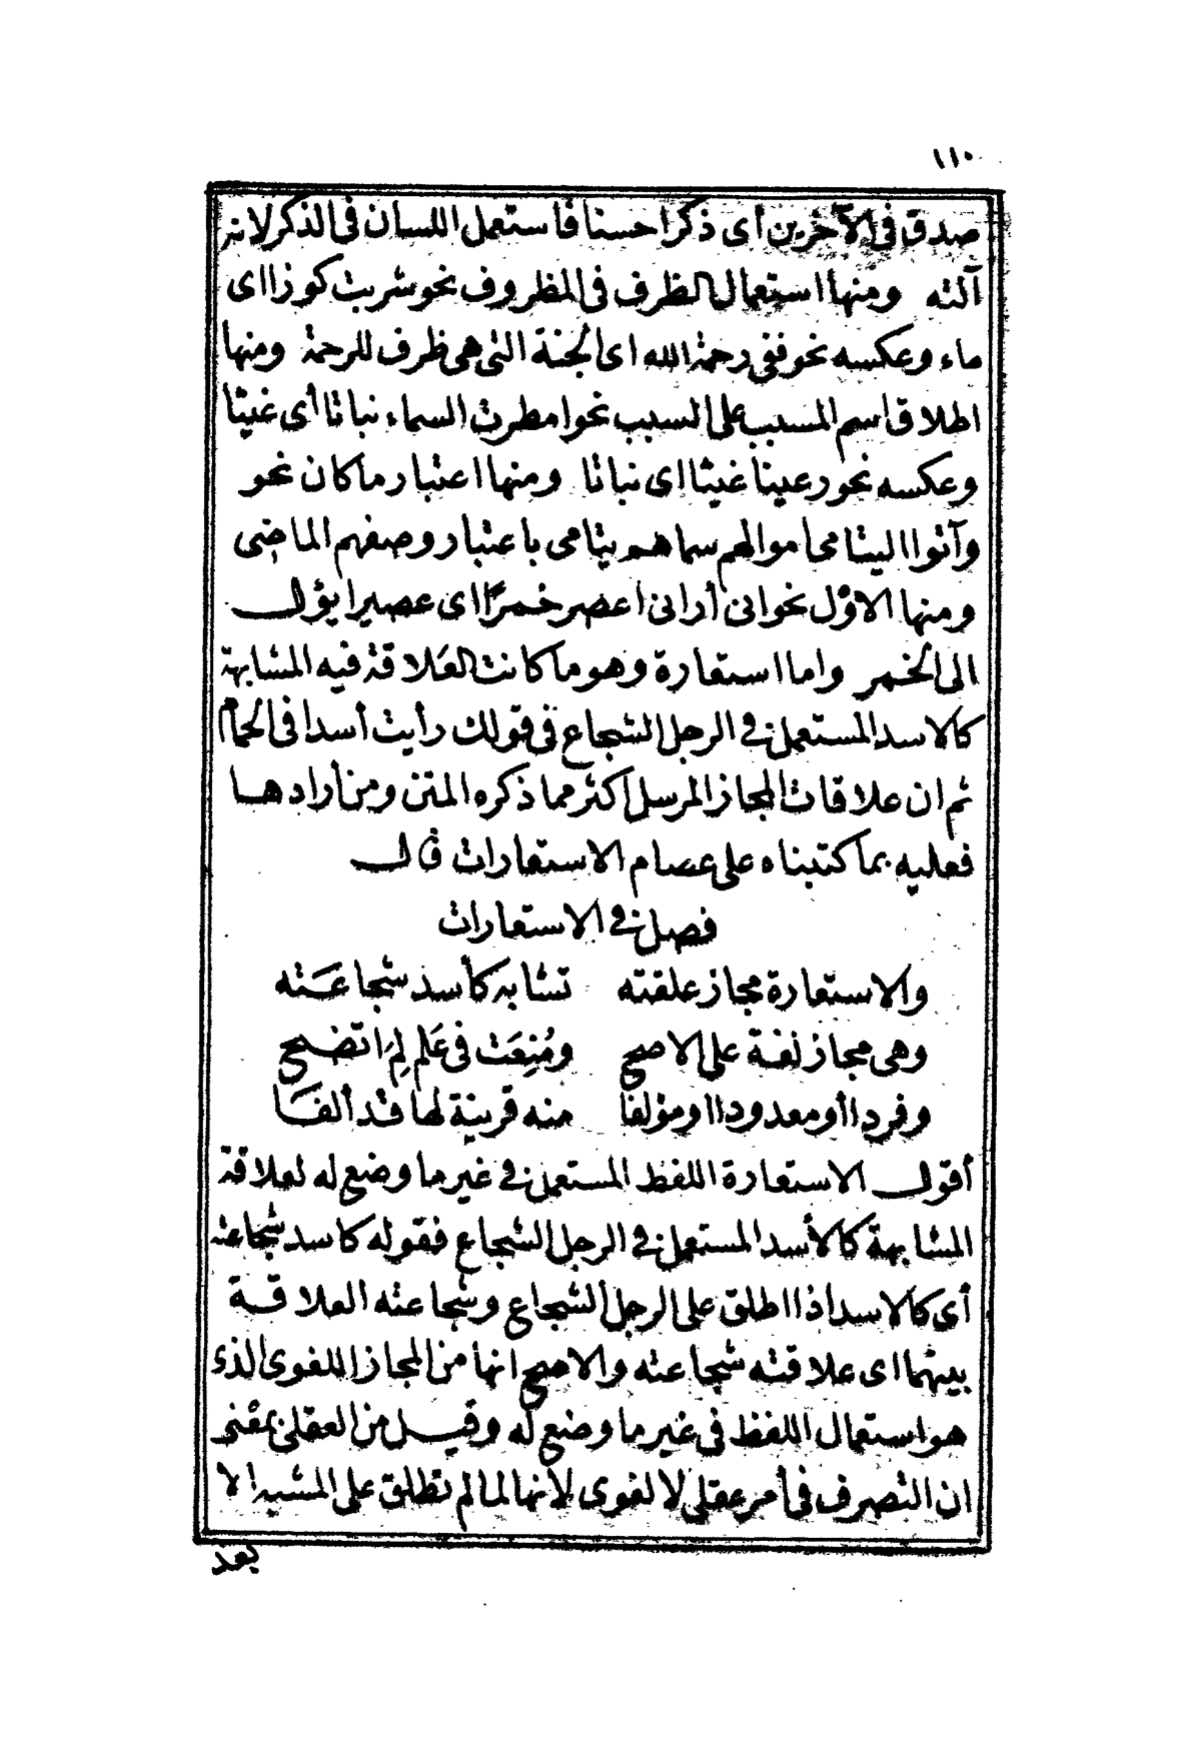 ١١٠
صدق في الآخرين أى ذكرا حسنا فاستعمل اللسان فى الذكر لانه
آلته ومنها استعمال الظرف فى المظروف نحو شربت كوزا اى
ماء وعكسه نحو ففى رحمة الله اى الجنة التى هى ظرف للرحمة ومنها
اطلاق اسم المسبب على السبب نحو امطرت السماء نباتا أى غيثا
وعكسه نحو رعينا غيثا اى نباتا ومنها اعتبار ما كان نحو
وآتوا اليتامى أموالهم سماهم يتامى باعتبار وصفهم الماضى
ومنها الاوْل نحو انى أرانى اعصر خمرًا اى عصيرا يؤل
الى الخمر واما استعارة وهو ما كانت العَلاقة فيه المشابهة
كالاسد المستعمل في الرجل الشجاع فى قولك رأيت أسدا فى الحمام
ثم ان علاقات المجاز المرسل اكثر مما ذكره المتن ومن أرادها
فعليه بما كتبناه على عصام الاستعارات قال
فصل في الاستعارات
والاستعارة مجاز علقته تشابه كأسد شجاعَته
وهى مجاز لغة على الاصح ومُنِعَت فى عَلم لِمَا اتضح
وفردا أو معدودا او مؤلفا منه قرينة لها قد ألفَا
أقول الاستعارة اللفظ المستعمل في غير ما وضع له لعلاقة
المشابهة كالأسد المستعمل في الرجل الشجاع فقوله كاسد شجاعته
أى كالاسد اذا اطلق على الرجل الشجاع وشجاعته العلاقة
بينهما اى علاقته شجاعته والاصح انها من المجاز اللغوى الذى
هو استعمال اللفظ فى غير ما وضع له وقيل من العقلى بمعنى
ان التصرف فى أمر عقلى لا لغوى لأنها لما لم تطلق على المشبه الا
بعد